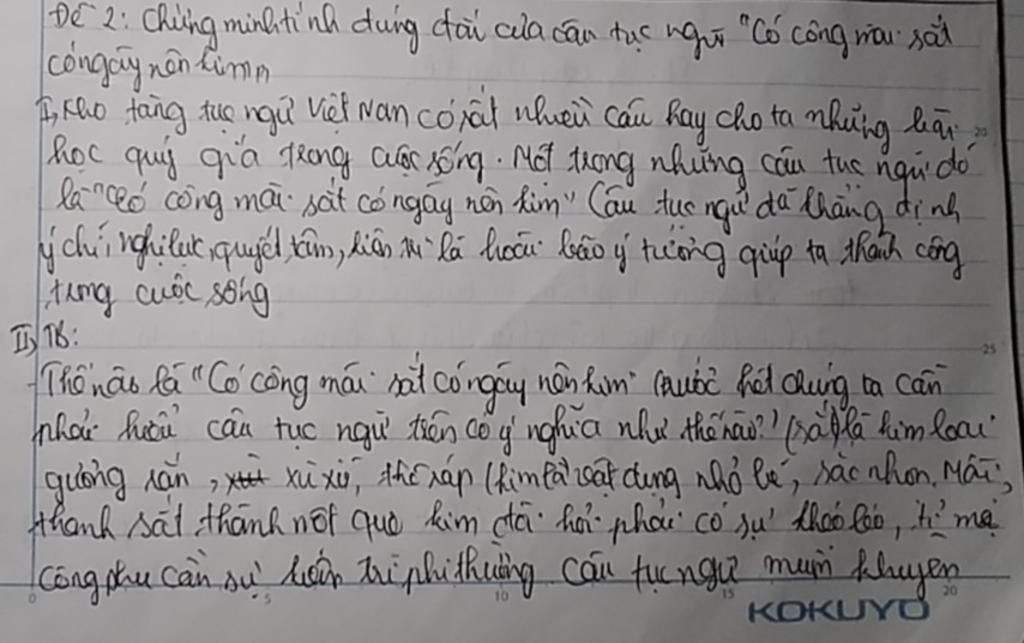 Đề 2: Chứng minh tính đúng đắn của câu tục ngữ "Có công mài sắt
có ngày nên kim"
I, Kho tàng tục ngữ Việt Nam có rất nhiều câu hay cho ta những bài
học quý giá trong cuộc sống. Một trong những câu tục ngữ đó
là "Có công mài sắt có ngày nên kim" Câu tục ngữ đã khẳng định
ý chí, nghị lực, quyết tâm, kiên trì là hoài bão ý tưởng giúp ta thành công
trong cuộc sống
II, TB:
- Thế nào là "Có công mài sắt có ngày nên kim" trước hết chúng ta cần
phải hiểu câu tục ngữ trên có ý nghĩa như thế nào? (sắt) là kim loại
cứng rắn, xù xì, thô ráp (kim là vật dụng nhỏ bé, sắc nhọn. Mài,
thanh sắt thành một que kim đòi hỏi phải có sự khéo léo, tỉ mỉ
công phu cần sự kiên trì phi thường Câu tục ngữ muốn khuyên
KOKUYO
0 5 10 15 20
20
25